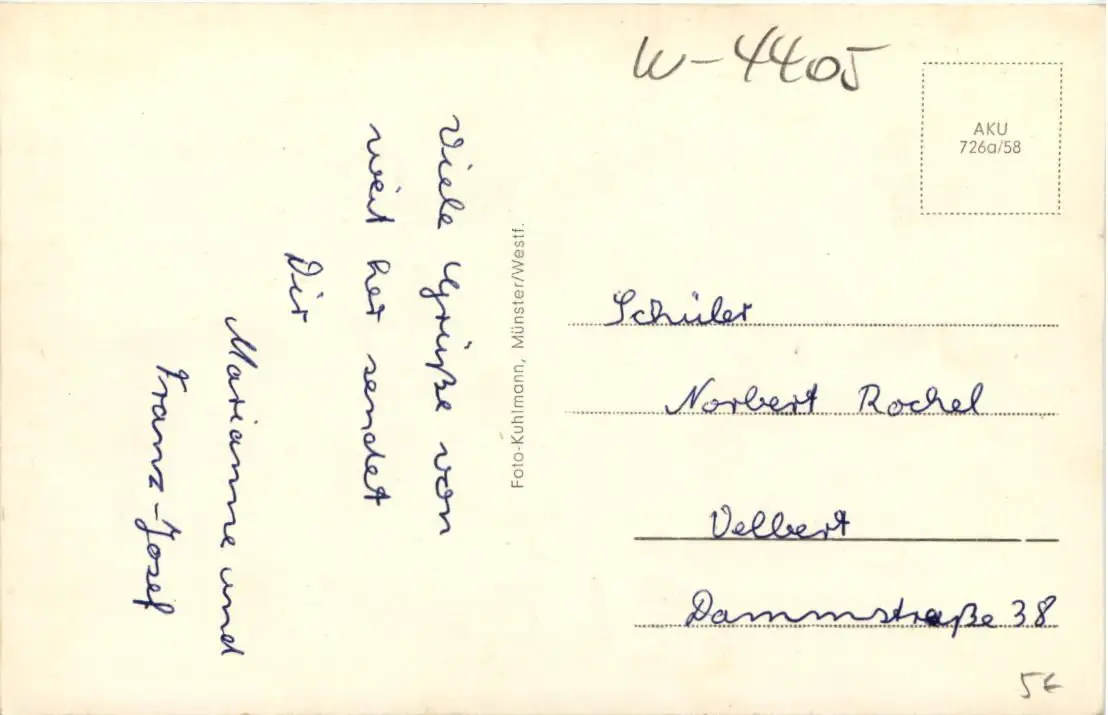 W-4405
AKU
726a/58
Viele Grüße von
weit her sendet
Dir
Marianne und
Franz-Josef
Foto-Kuhlmann, Münster/Westf.
Schüler
Norbert Rochel
Velbert
Dammstraße 38
5€